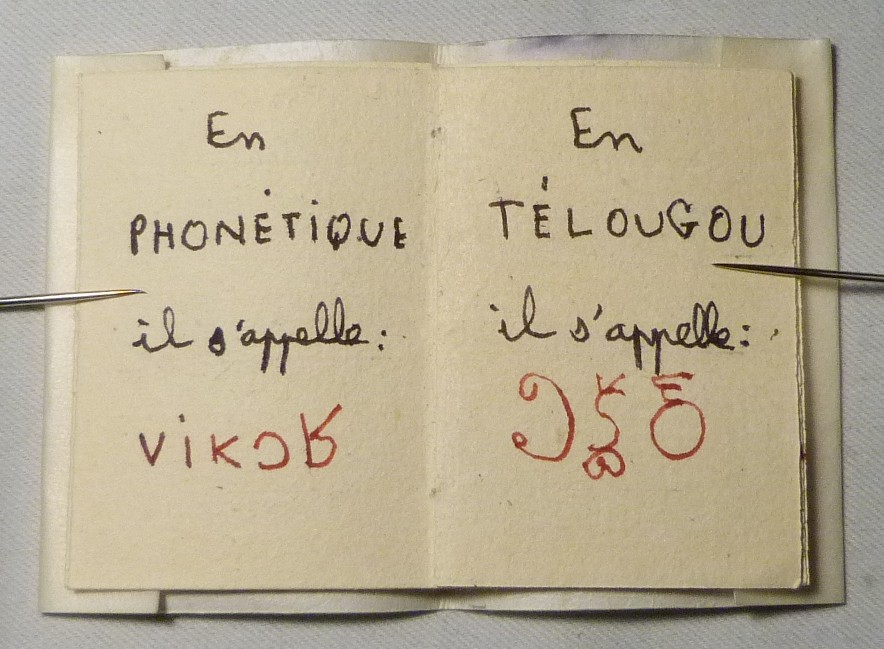 En
PHONÉTiQUE
il s'appelle:
vikɔʁ
En
TÉLOUGOU
il s'appelle:
విక్టర్